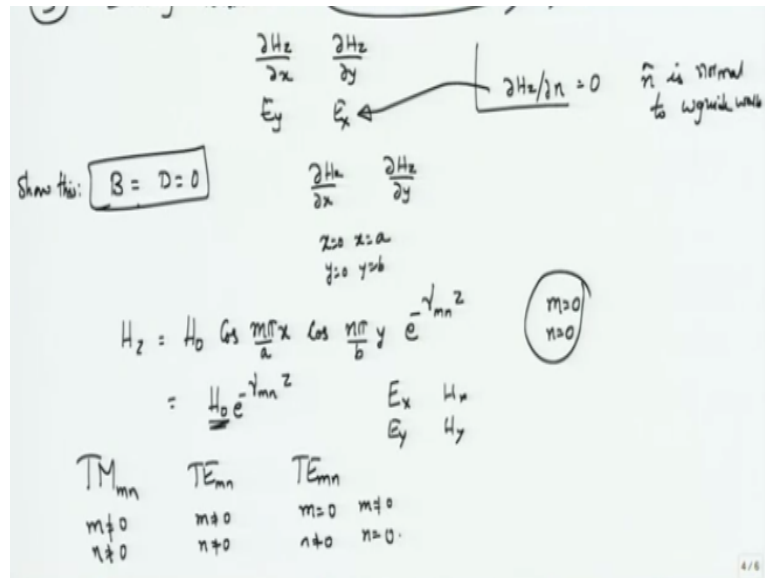 ∂Hz/∂x ∂Hz/∂y
Ey Ex
∂Hz/∂n = 0
n̂ is normal
to wguide walls
Show this: B = D = 0
∂Hz/∂x ∂Hz/∂y
x=0 x=a
y=0 y=b
Hz = H0 Cos mπ/a x Cos nπ/b y e^-γmn z
m=0
n=0
= H0 e^-γmn z
Ex Hx
Ey Hy
TMmn TEmn TEmn
m≠0 m≠0 m=0 m≠0
n≠0 n≠0 n≠0 n=0.
4/6